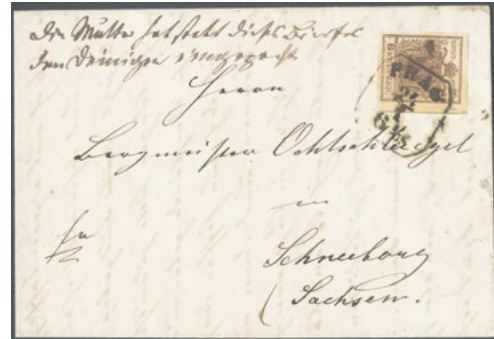 Die Mutter hat statt dieses Briefes
den Deinigen eingepackt
Herrn
Bergmeister Oehlschlaegel
in
Schneeberg
Sachsen.
PRAG